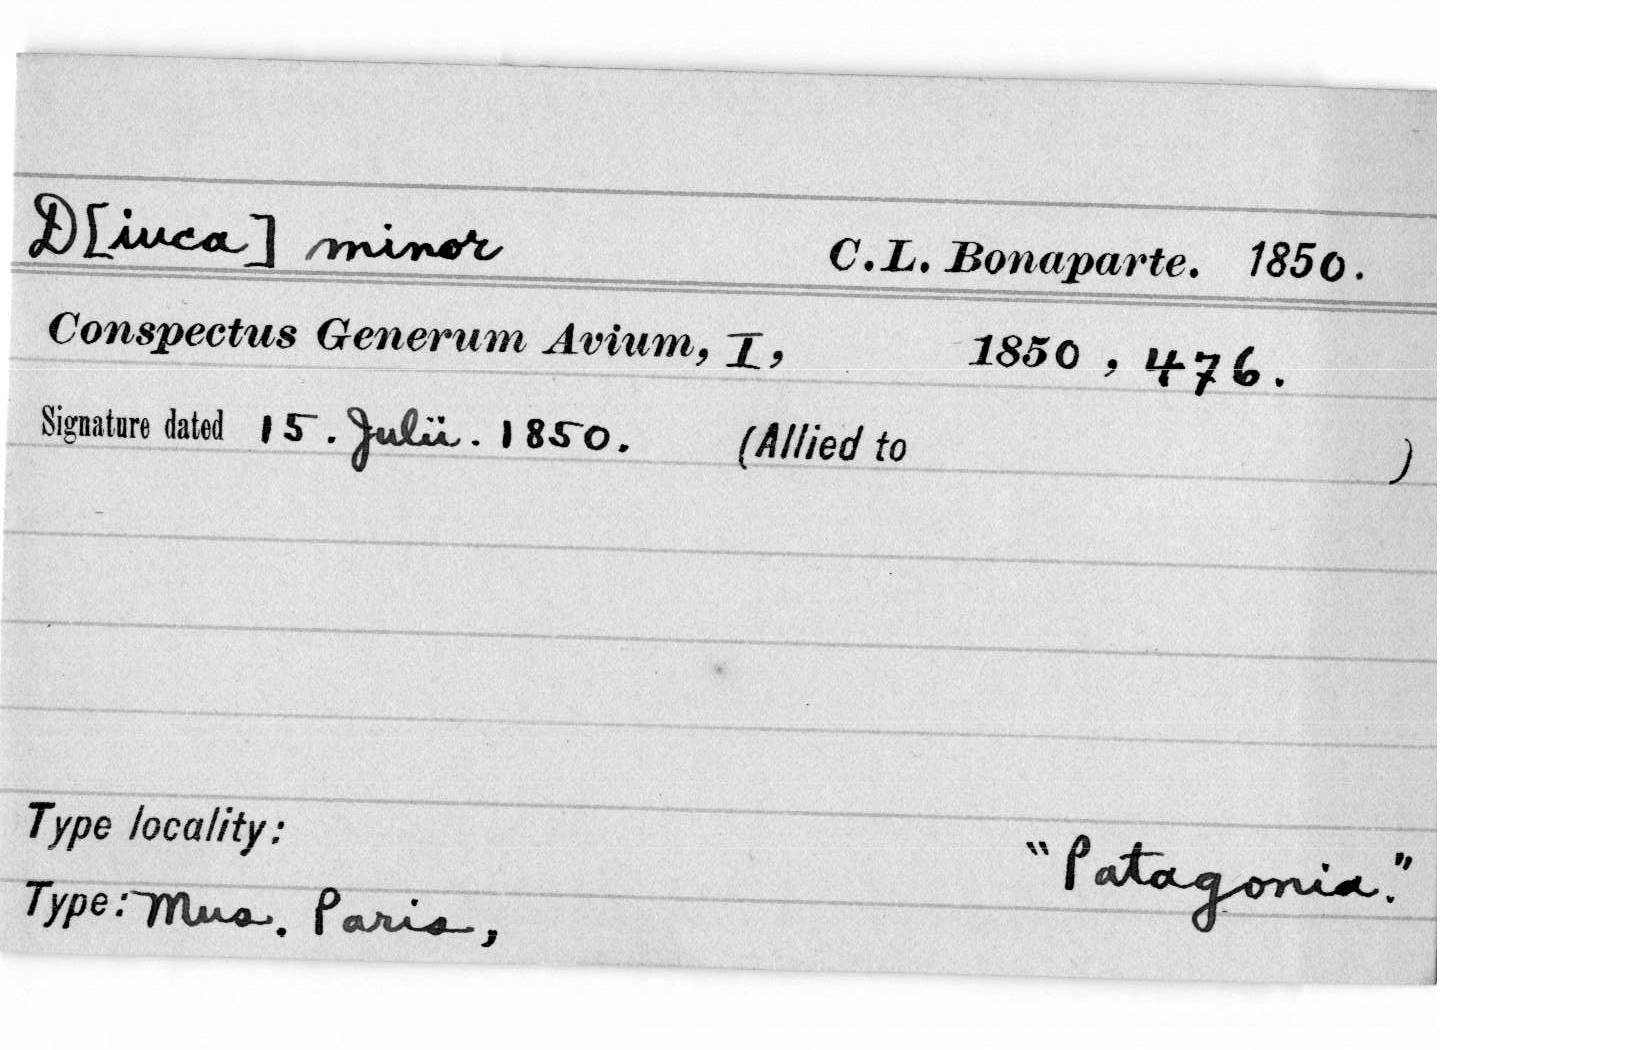 D[iuca] minor C.L. Bonaparte. 1850.
Conspectus Generum Avium, I, 1850, 476.
Signature dated 15. Julii. 1850. (Allied to )
Type locality: "Patagonia."
Type: Mus. Paris,